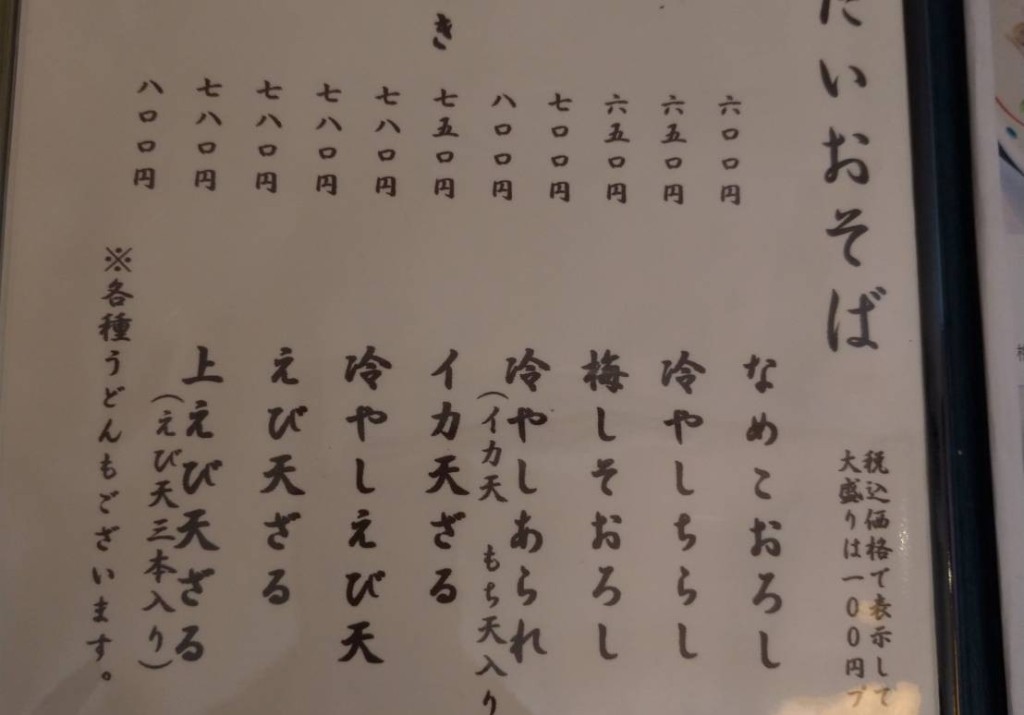 たいおそば
税込価格で表示して
大盛りは一〇〇円プ
き
六〇〇円
六五〇円
六五〇円
七〇〇円
八〇〇円
七五〇円
七八〇円
七八〇円
七八〇円
七八〇円
八〇〇円
なめこおろし
冷やしちらし
梅しそおろし
冷やしあられ
(イカ天 もち天入り
イカ天ざる
冷やしえび天
えび天ざる
上えび天ざる
(えび天三本入り)
※各種うどんもございます。